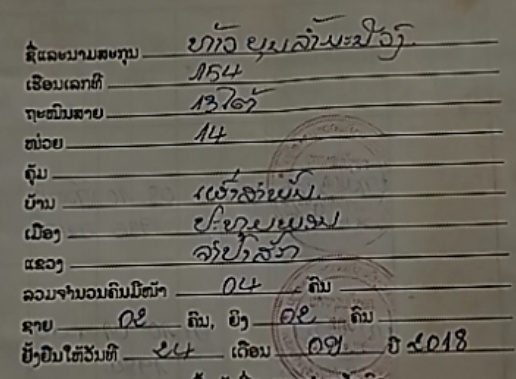 ຊື່ແລະນາມສະກຸນ ທ້າວ ບຸນລ້ຳ
ເຮືອນເລກທີ 154
ຖະໜົນສາຍ 13 ໃຕ້
ໜ່ວຍ 14
ຄຸ້ມ
ບ້ານ
ເມືອງ ປະທຸມພອນ
ແຂວງ ຈຳປາສັກ
ລວມຈຳນວນຄົນມີໜ້າ 04 ຄົນ
ຊາຍ 02 ຄົນ, ຍິງ 02 ຄົນ
ຢັ້ງຢືນໃຫ້ວັນທີ 24 ເດືອນ 09 ປີ 2018